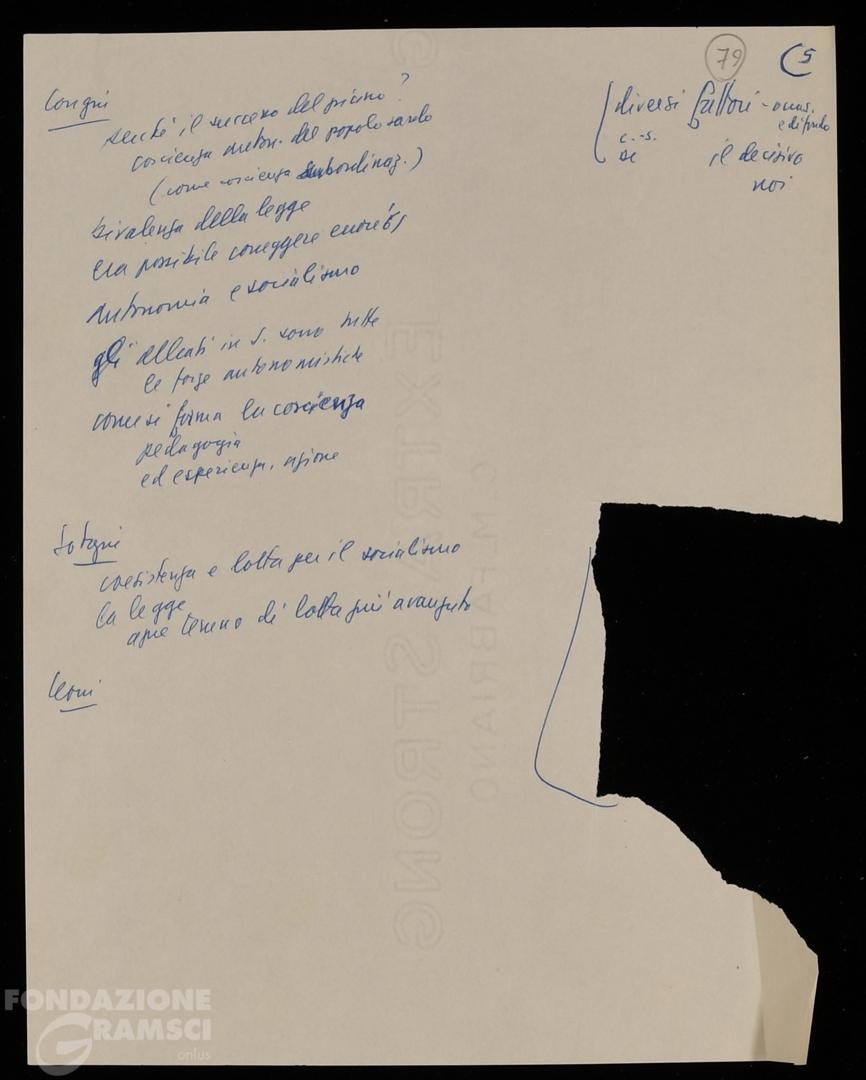 79
5
Congiu
perché il successo del piano?
coscienza auton. del popolo sardo
(come coscienza subordinaz.)
bivalenza della legge
era possibile correggere
autonomia e socialismo
gli alleati in S. sono tutte
le forze autonomistiche
come si forma la coscienza
pedagogia
ed esperienza, azione
diversi fattori -
c. -s.
se il decisivo
noi
Sotgiu
coesistenza e lotta per il socialismo
la legge
apre terreno di lotta più avanzato
Leoni
EXTRA STRONG
C.M.FABRIANO
FONDAZIONE
GRAMSCI
onlus